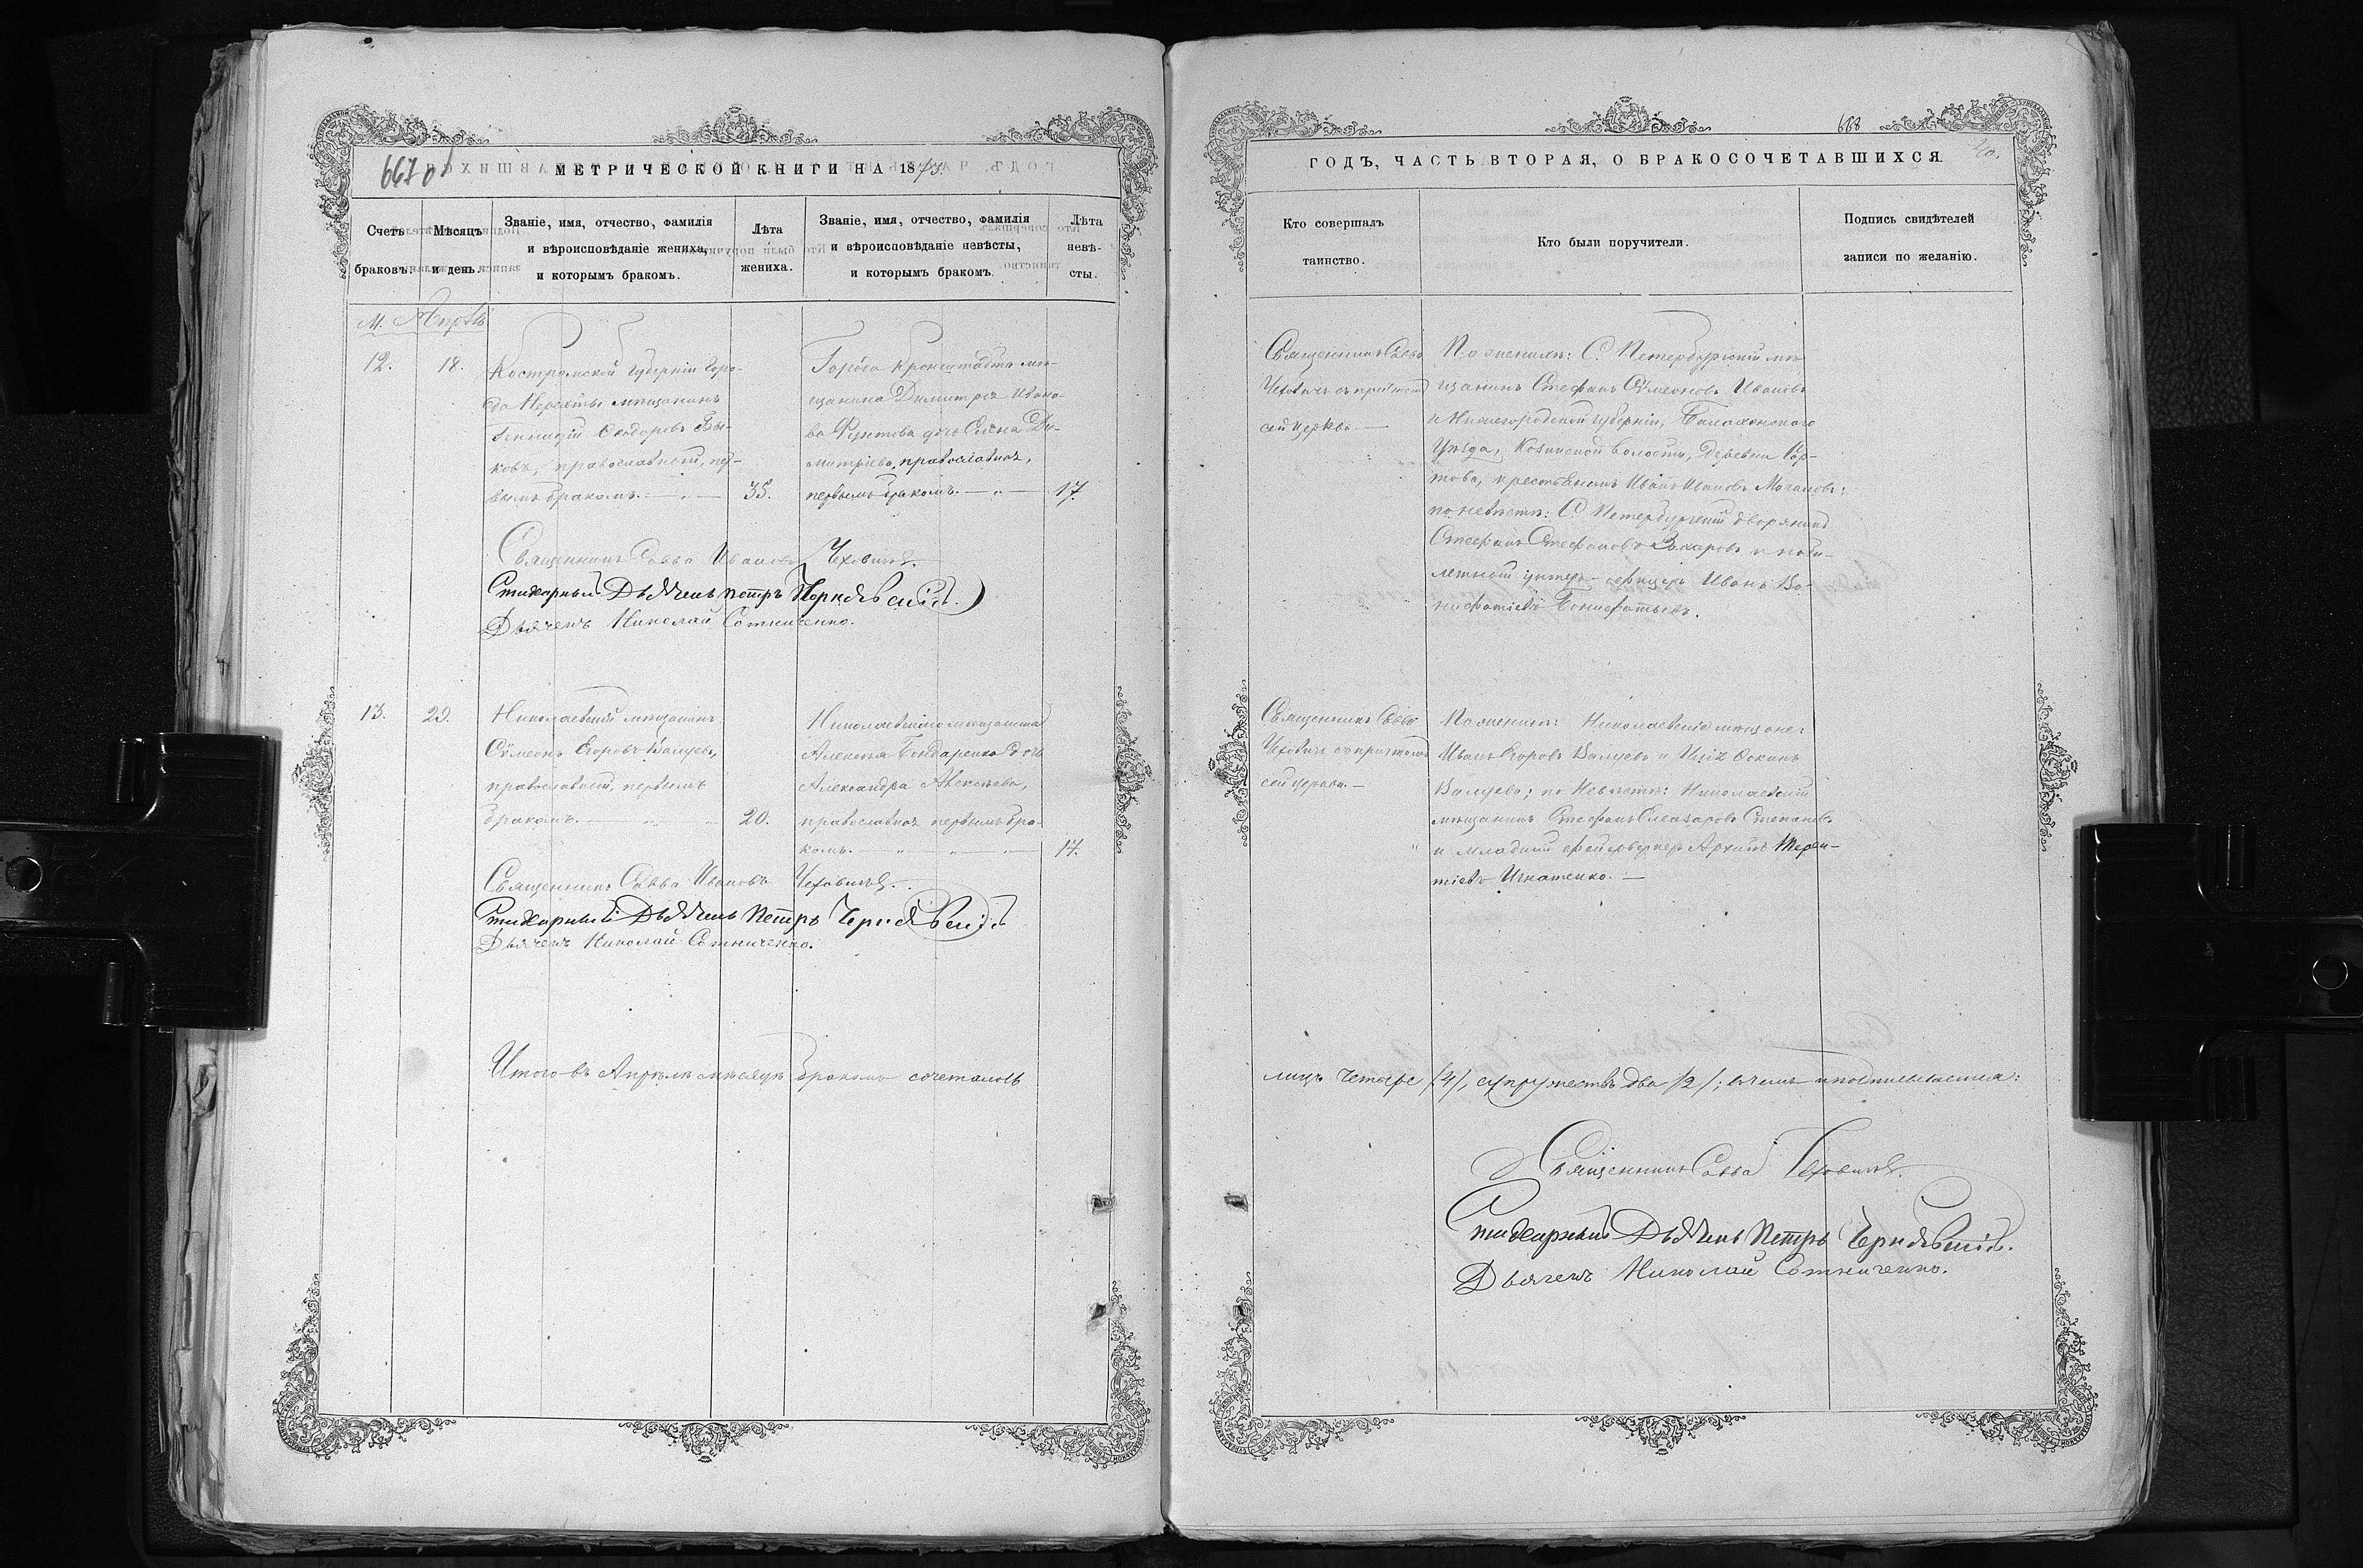 667 об
МЕТРИЧЕСКОЙ КНИГИ НА 1873.
Счетъ браковъ.
Мѣсяцъ и день.
Званіе, имя, отчество, фамилія
и вѣроисповѣданіе жениха,
и которымъ бракомъ.
Лѣта
жениха.
Званіе, имя, отчество, фамилія
и вѣроисповѣданіе невѣсты,
и которымъ бракомъ.
Лѣта
невѣ-
сты.
М. Апрѣль
12.
18.
Костромской Губерніи Горо-
да Нерехты мѣщанинъ
Геннадій Ѳеодоровъ Бы-
ковъ, православный, пер-
вымъ бракомъ. — „ —
35.
Города Кронштадта мѣ-
щанина Димитрія Ивано-
ва дочь Елена Ди-
митріева, православная,
первымъ бракомъ. — „ —
17.
Священникъ Савва Ивановъ Чеховичъ.
Стихарный Дьячекъ Петръ Чернявскій.
Дьячекъ Николай Сотниченко.
13.
29.
Николаевскій мѣщанинъ
Сѵмеонъ Егоровъ Валуевъ,
православный, первымъ
бракомъ. — „ „
20.
Николаевскаго мѣщанина
Алексѣя Бондаренко дочь
Александра Алексѣева,
православная первымъ бра-
комъ. — „ — „ — „ —
17.
Священникъ Савва Ивановъ Чеховичъ.
Стихарный Дьячекъ Петръ Чернявскій
Дьячекъ Николай Сотниченко.
Итого въ Апрѣлѣ мѣсяцѣ бракомъ сочеталось
668
ГОДЪ, ЧАСТЬ ВТОРАЯ, О БРАКОСОЧЕТАВШИХСЯ.
Кто совершалъ
таинство.
Кто были поручители.
Подпись свидѣтелей
записи по желанію.
Священникъ Савва
Чеховичъ съ причтомъ
сей церкви. —
По женихѣ: С. Петербургскій мѣ-
щанинъ Стефанъ Сѵмеоновъ Ивановъ
и Нижегородской губерніи, Балахонскаго
Уѣзда, Козинской волости, деревни Гор-
това, крестьянинъ Иванъ Ивановъ
по невѣстѣ: С. Петербургскій дворянинъ
Стефанъ Стефановъ Захаровъ и
унтеръ-офицеръ Иванъ Во-
нифатіевъ Бонифатьевъ.
Священникъ Савва
Чеховичъ съ причтомъ
сей церкви. —
По женихѣ: Николаевскіе мѣщане:
Иванъ Егоровъ Валуевъ и Илія
Валуевъ; по Невѣстѣ: Николаевскій
мѣщанинъ Стефанъ Елеазаровъ Степановъ
и младшій фейерверкеръ Архипъ Терен-
тіевъ Игнатенко. —
лицъ четыре /4/, супружествъ два /2/; въ чемъ и подписываемся:
Священникъ Савва Чеховичъ.
Стихарный Дьячекъ Петръ Чернявскій.
Дьячекъ Николай Сотниченко.